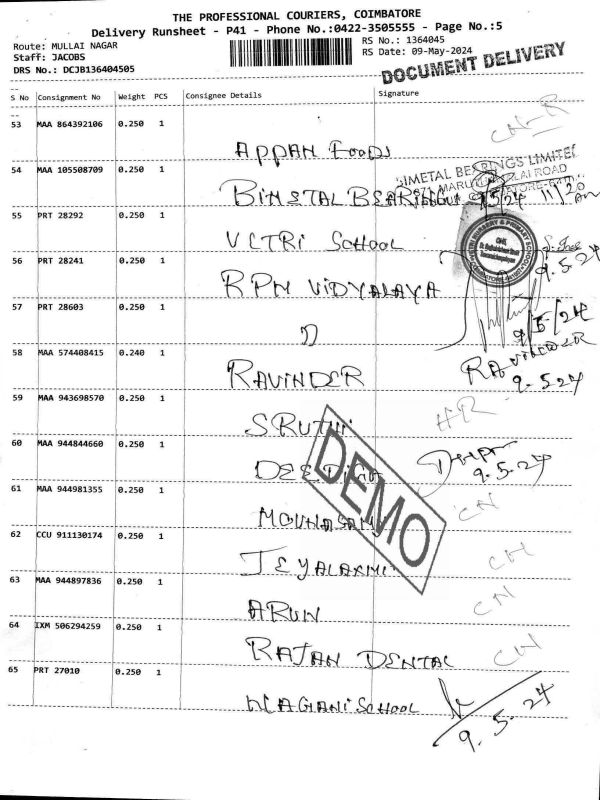 THE PROFESSIONAL COURIERS, COIMBATORE
Delivery Runsheet - P41 - Phone No.:0422-3505555 - Page No.:5
Route: MULLAI NAGAR
RS No.: 1364045
Staff: JACOBS
RS Date: 09-May-2024
DRS No.: DCJB136404505
DOCUMENT DELIVERY
S No Consignment No Weight PCS Consignee Details Signature
53 MAA 864392106 0.250 1
CN-R
APPAN FOODS
54 MAA 105508709 0.250 1
BIMETAL BEARINGS LIMITED
BIMETAL BEARING 9/5/24 11/20 AM
55 PRT 28292 0.250 1
VETRI SCHOOL
56 PRT 28241 0.250 1
9.5.24
RPM VIDYALAYA
57 PRT 28603 0.250 1
9/5/24
58 MAA 574408415 0.240 1
RAVINDER
RAVINDER
9.5.24
59 MAA 943698570 0.250 1
HR
SRUTHI
60 MAA 944844660 0.250 1
9.5.24
DEMO
61 MAA 944981355 0.250 1
CN
MOUNASAMY
62 CCU 911130174 0.250 1
CN
JEYALAXMI
63 MAA 944897836 0.250 1
CN
ARUN
64 IXM 506294259 0.250 1
CN
RAJAN DENTAL
65 PRT 27010 0.250 1
SCHOOL
9.5.24